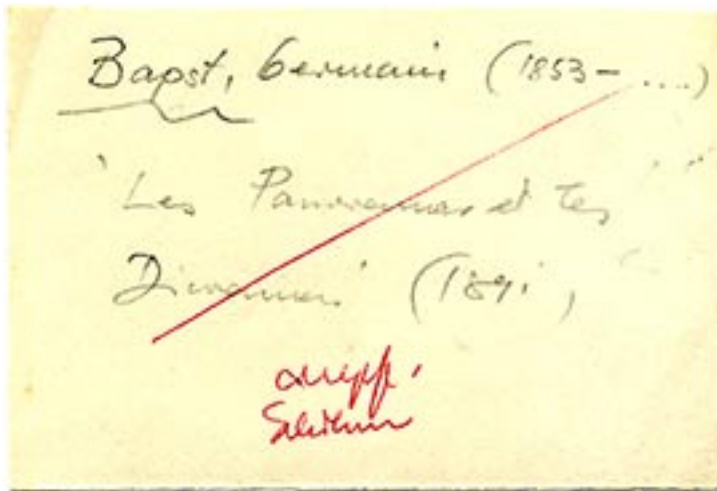 Bapst, Germain (1853- ....)
"Les Panoramas et les
Dioramas" (1891,